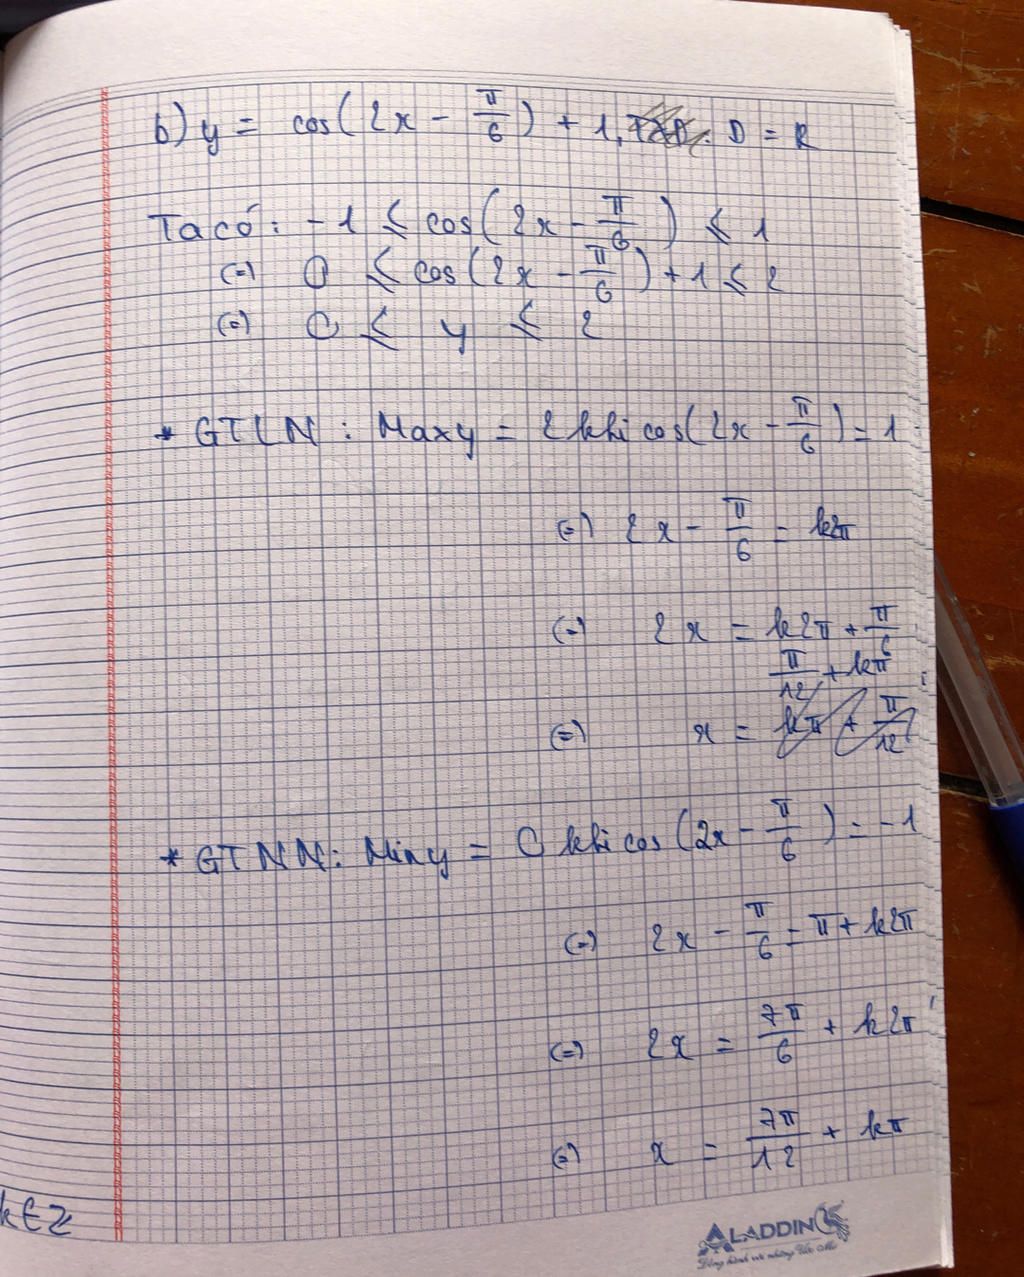 b) y = cos(2x - π/6) + 1, D = R
Ta có: -1 ≤ cos(2x - π/6) ≤ 1
(=) 0 ≤ cos(2x - π/6) + 1 ≤ 2
(=) 0 ≤ y ≤ 2
* GTLN: Maxy = 2 khi cos(2x - π/6) = 1
(=) 2x - π/6 = k2π
(=) 2x = k2π + π/6
π/12 + kπ
(=) x = kπ + π/12
* GTNN: Miny = 0 khi cos(2x - π/6) = -1
(=) 2x - π/6 = π + k2π
(=) 2x = 7π/6 + k2π
(=) x = 7π/12 + kπ
k∈Z
ALADDIN
Đồng hành với những Ước Mơ